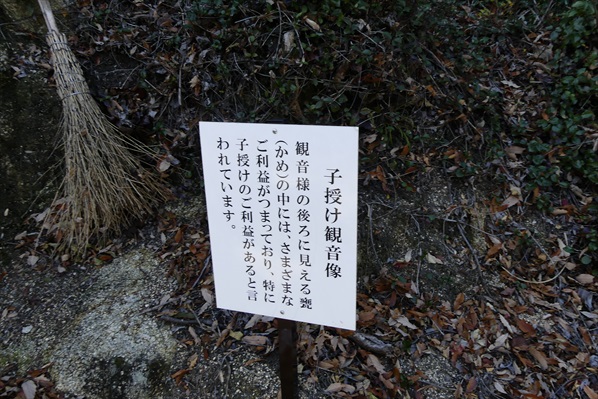 子授け観音像
観音様の後ろに見える甕
(かめ)の中には、さまざまな
ご利益がつまっており、特に
子授けのご利益があると言
われています。